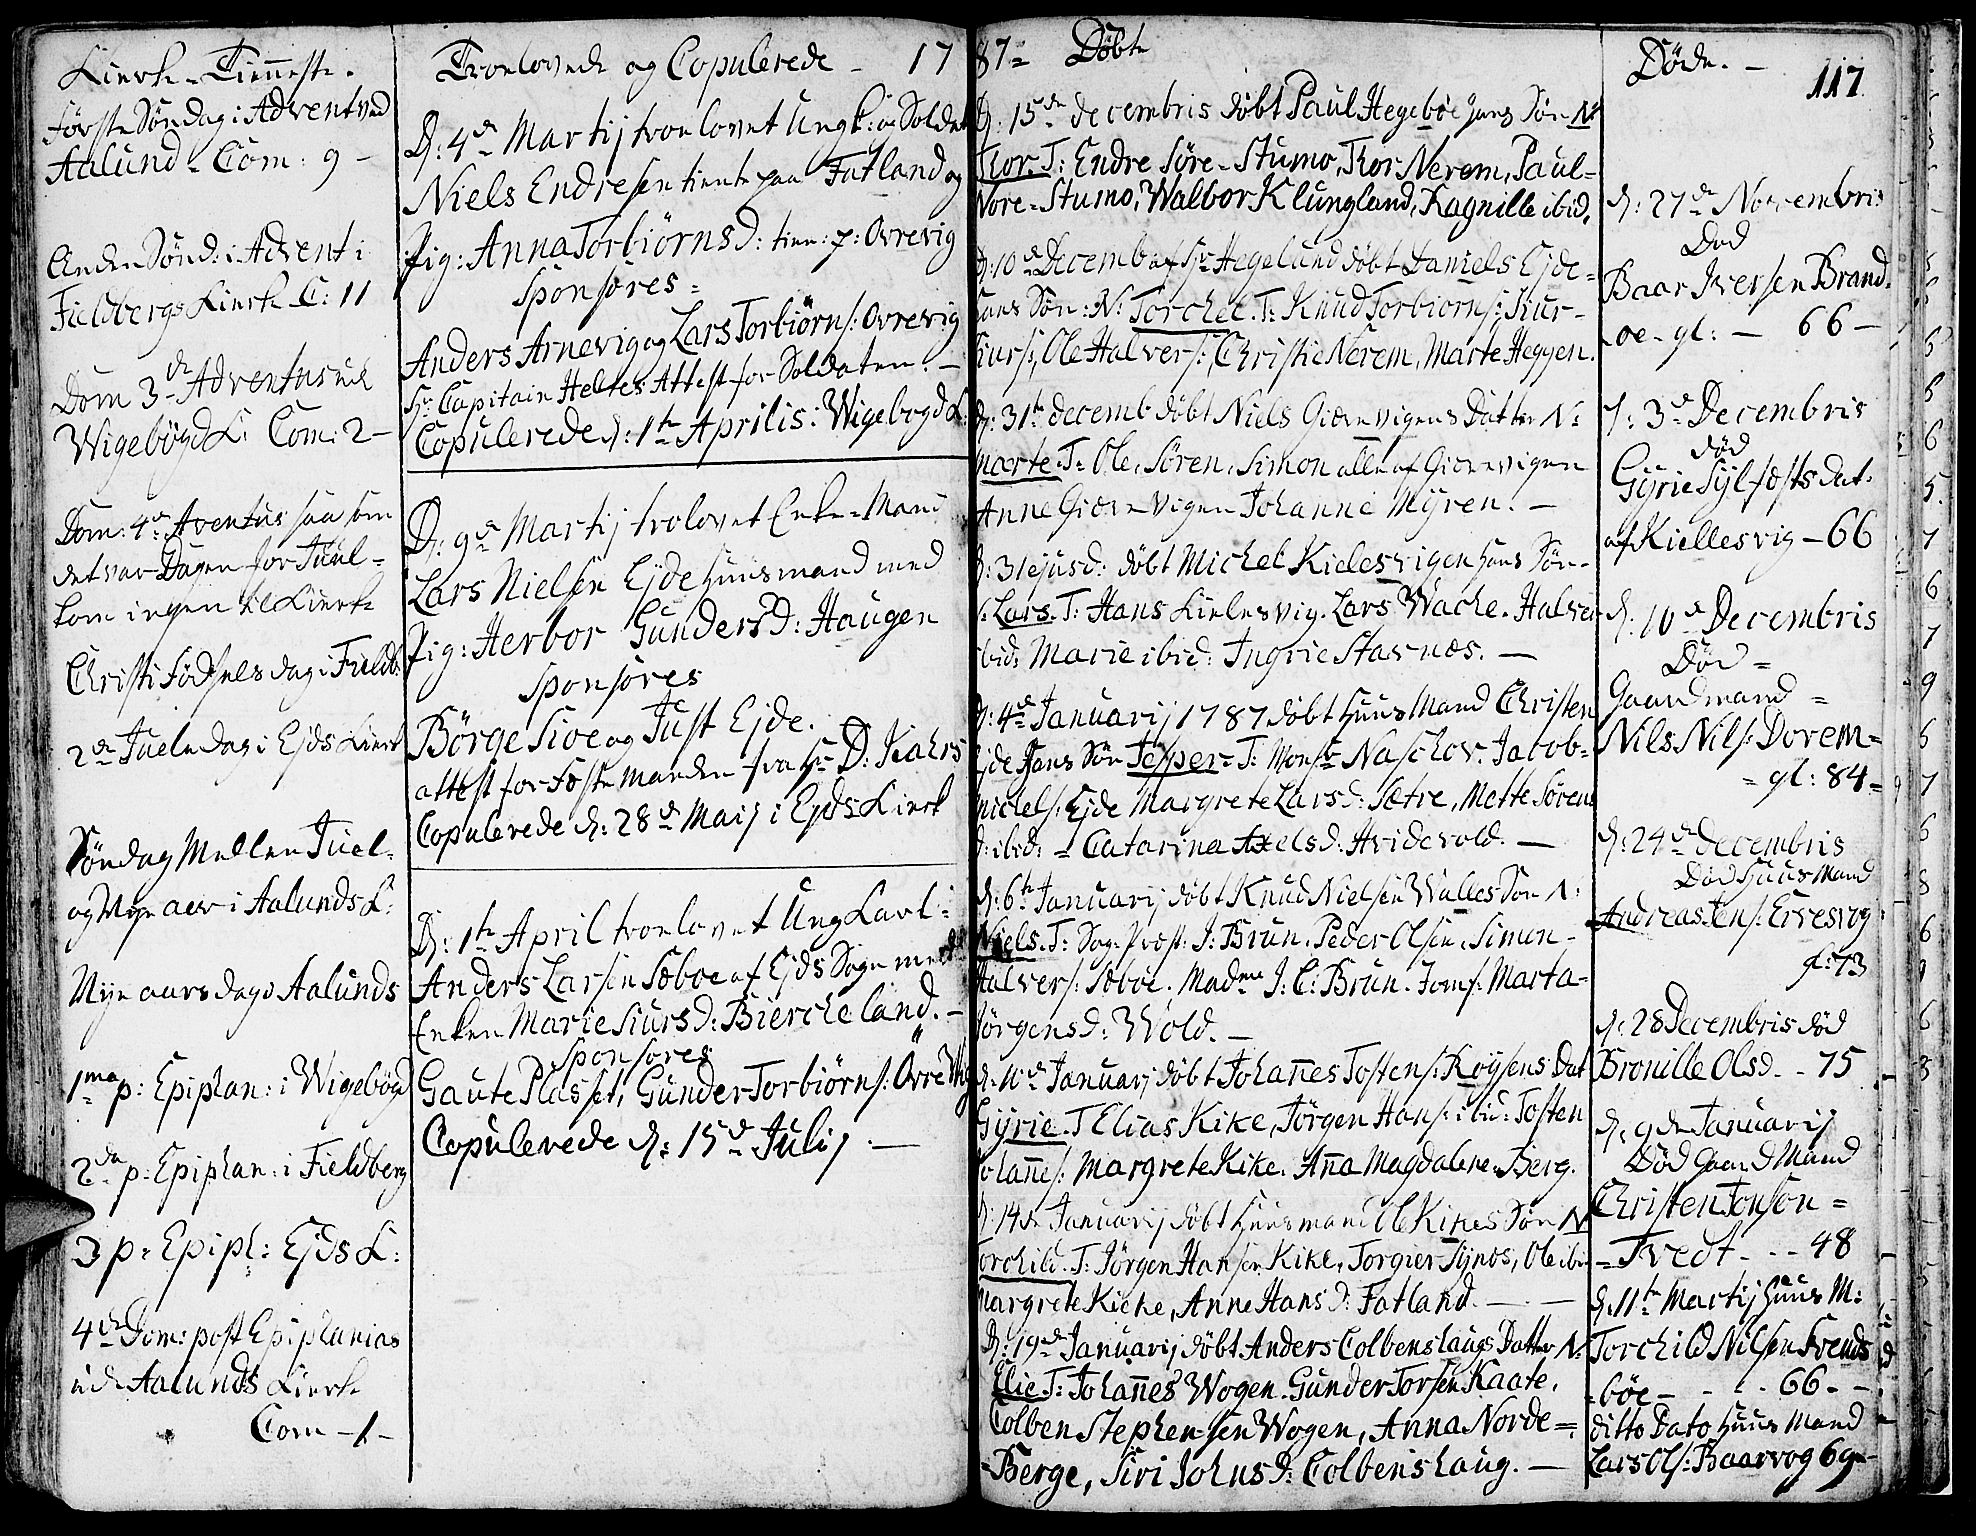 Kierke-Tienneste.
Første Søndag i Advent ved
Aalund - Com: 9 -
Anden Sønd: i Advent i
Fieldbergs Kierke C: 11
Dom 3de Adventus ved
Wigebøygd K: Com: 2 -
Dom: 4de Aventus saa som
det var Dagen for Juul-
kom ingen til Kierke
Christi Fødsels dag i Fieldb:
2den Juele dag i Ejds Kierke
Søndag Mellem Juel-
og Nyn aar i Aalunds K:
Nyn aars dag i Aalunds
1ma p: Epiphan: i Wigebøgd
2da p: Epiphan: i Fieldberg
3 p: Epiph: Ejds K:
4de Dom: post Epiphanias
ved Aalunds Kierke
Com - 1 -
Troelovede og Copulerede - 17
D: 4de Martij troelovet Ungk: og Soldat
Niels Endresen tient paa Fatland og
Pig: Anna Torbiørnsd: tien: p: Ovrevig
Sponsores =
Anders Arnevig og Lars Torbiørns: Ovrevig
Hr Capitain Heltes Attest for Soldaten. -
Copulerede d: 1te Aprilis: Wigebogd K:
D: 9de Martij trolovet Enke-Mand
Lars Nielsen Ejde Huusmand med
Pig: Herbor Gundersd: Haugen
Sponsores
Børge Sioe og Just Ejde.
attest for Fæste Manden fra Hr D: Kahrs
Copulerede d: 28de Maij i Ejds Kierk
D: 1te April troelovet Ung Karl:
Anders Larsen Sæboe af Ejds Sogn med
Enken Marie Siursd: Biercheland. -
Sponsores
Gaute Plasset, Gunder Torbiørns: Øvre Wig
Copulerede d: 15de Julij. -
87= Døbte
D: 15de decembris døbt Paul Hegebøe hans Søn N:
Thor. T: Endre Søre-Stumo, Thor Nerem, Paul-
Nore-Stumo, Walbor Klungland, Ragnille ibid.
D: 10de Decemb af Hr Hegelund døbt Daniels Ejde-
hans Søn: N: Torchel. T: Knud Torbiorns: Kur-
Kurs:, Ole Halvers:, Christie Nerem, Marte Heggen.
D: 31te decemb døbt Niels Giærevigens Datter N:
Marte. T: Ole, Søren, Simon alle af Giærevigen
Anne Giærevigen Johanne Myren. -
D: 31 ejusd: døbt Michel Kielesvigen hans Søn-
N: Lars. T: Hans Kielesvig. Lars Wache. Halver
ibid: Marie ibid: Ingrie Stavnæs. -
D: 4de Januarij 1787 døbt Huus Mand Christen
Ejde Hans Søn Jesper. T: Monsr Naschov. Jacob-
Michels: Ejde Margrete Larsd: Sætre, Mette Sørens
d: ibid: - Catarina Axelsd: Hvidevold. -
D: 6te Januarij døbt Knud Nielsen Walles Søn N:
Niels. T: Sog: Præst: J: Brun. Peder Olsen, Simon-
Halvers: Sæbøe. Madme J: C: Brun. Jomf: Marta-
Jørgensd: Wold. -
D: 10de Januarj døbt Johannes Tostens: Roysens Dat
Gyrie. T Elias Kike, Jørgen Hans: ibid: Tosten
Johannes: Margrete Kike. Anna Magdalene Berg.
D: 14de Januarij døbt Huusmand Ole Kikes Søn N
Torchild. T: Jørgen Hansen Kike, Torgier Synes, Ole ibi-
Margrete Kicke, Anne Hansd: Fatland. -
D: 19de Januarij døbt Anders Colbenshaugs Datter N:
Elie. T: Johannes Wogen. Gunder Torsen Kaate,
Colben Stephensen Wogen, Anna Norde=
=Berge, Siri Johnsd: Colbenshaug. -
Døde. -
117
d: 27de Novembris
Død
Baar Iversen Brand-
-oe - gl: - 66 -
d: 3de Decembris
død
Gyrie Sylfæstsdat.
af Kiellesvig - 66
d: 10de Decembris
Død =
Gaardmand =
Nils Nils: Dorem=
= gl: 84 -
d: 24de decembris
Død Huus Mand
Andreas Jens: Ervesvog
gl: 73
d: 28 Decembris død
Bronille Olsd. - 75
d: 9de Januarij
Død Gaard Mand
Christen Jonson =
= Tvedt - - - 48
d: 11te Martij Huus M:
Torchild Nilsen Svends
=bøe - - - - 66 - -
ditto Dato Huus Mand
Lars Ols: Baarvog 69 -